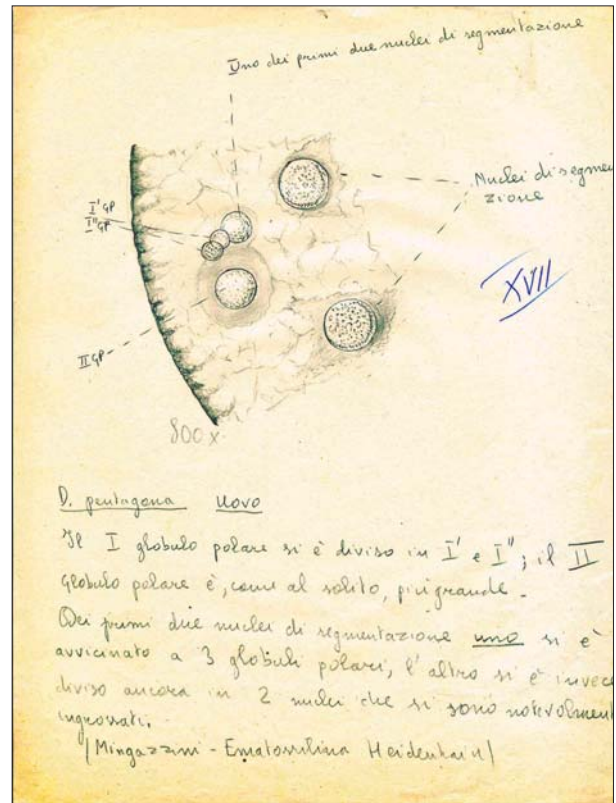 Uno dei primi due nuclei di segmentazione
Nuclei di segmen
zione
I' GP
I'' GP
XVII
II GP
800 x
D. pentagona uovo
Il I globulo polare si è diviso in I' e I''; il II
globulo polare è, come al solito, più grande.
Dei primi due nuclei di segmentazione uno si è
avvicinato a 3 globuli polari, l'altro si è invece
diviso ancora in 2 nuclei che si sono notevolment
ingrossati.
(Mingazzini - Ematossilina Heidenhain)